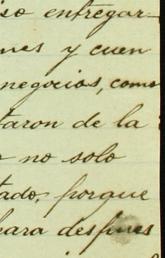 so entregar-
nes y cuen
negocios, como
taron de la
no solo
tado, porque
para despues